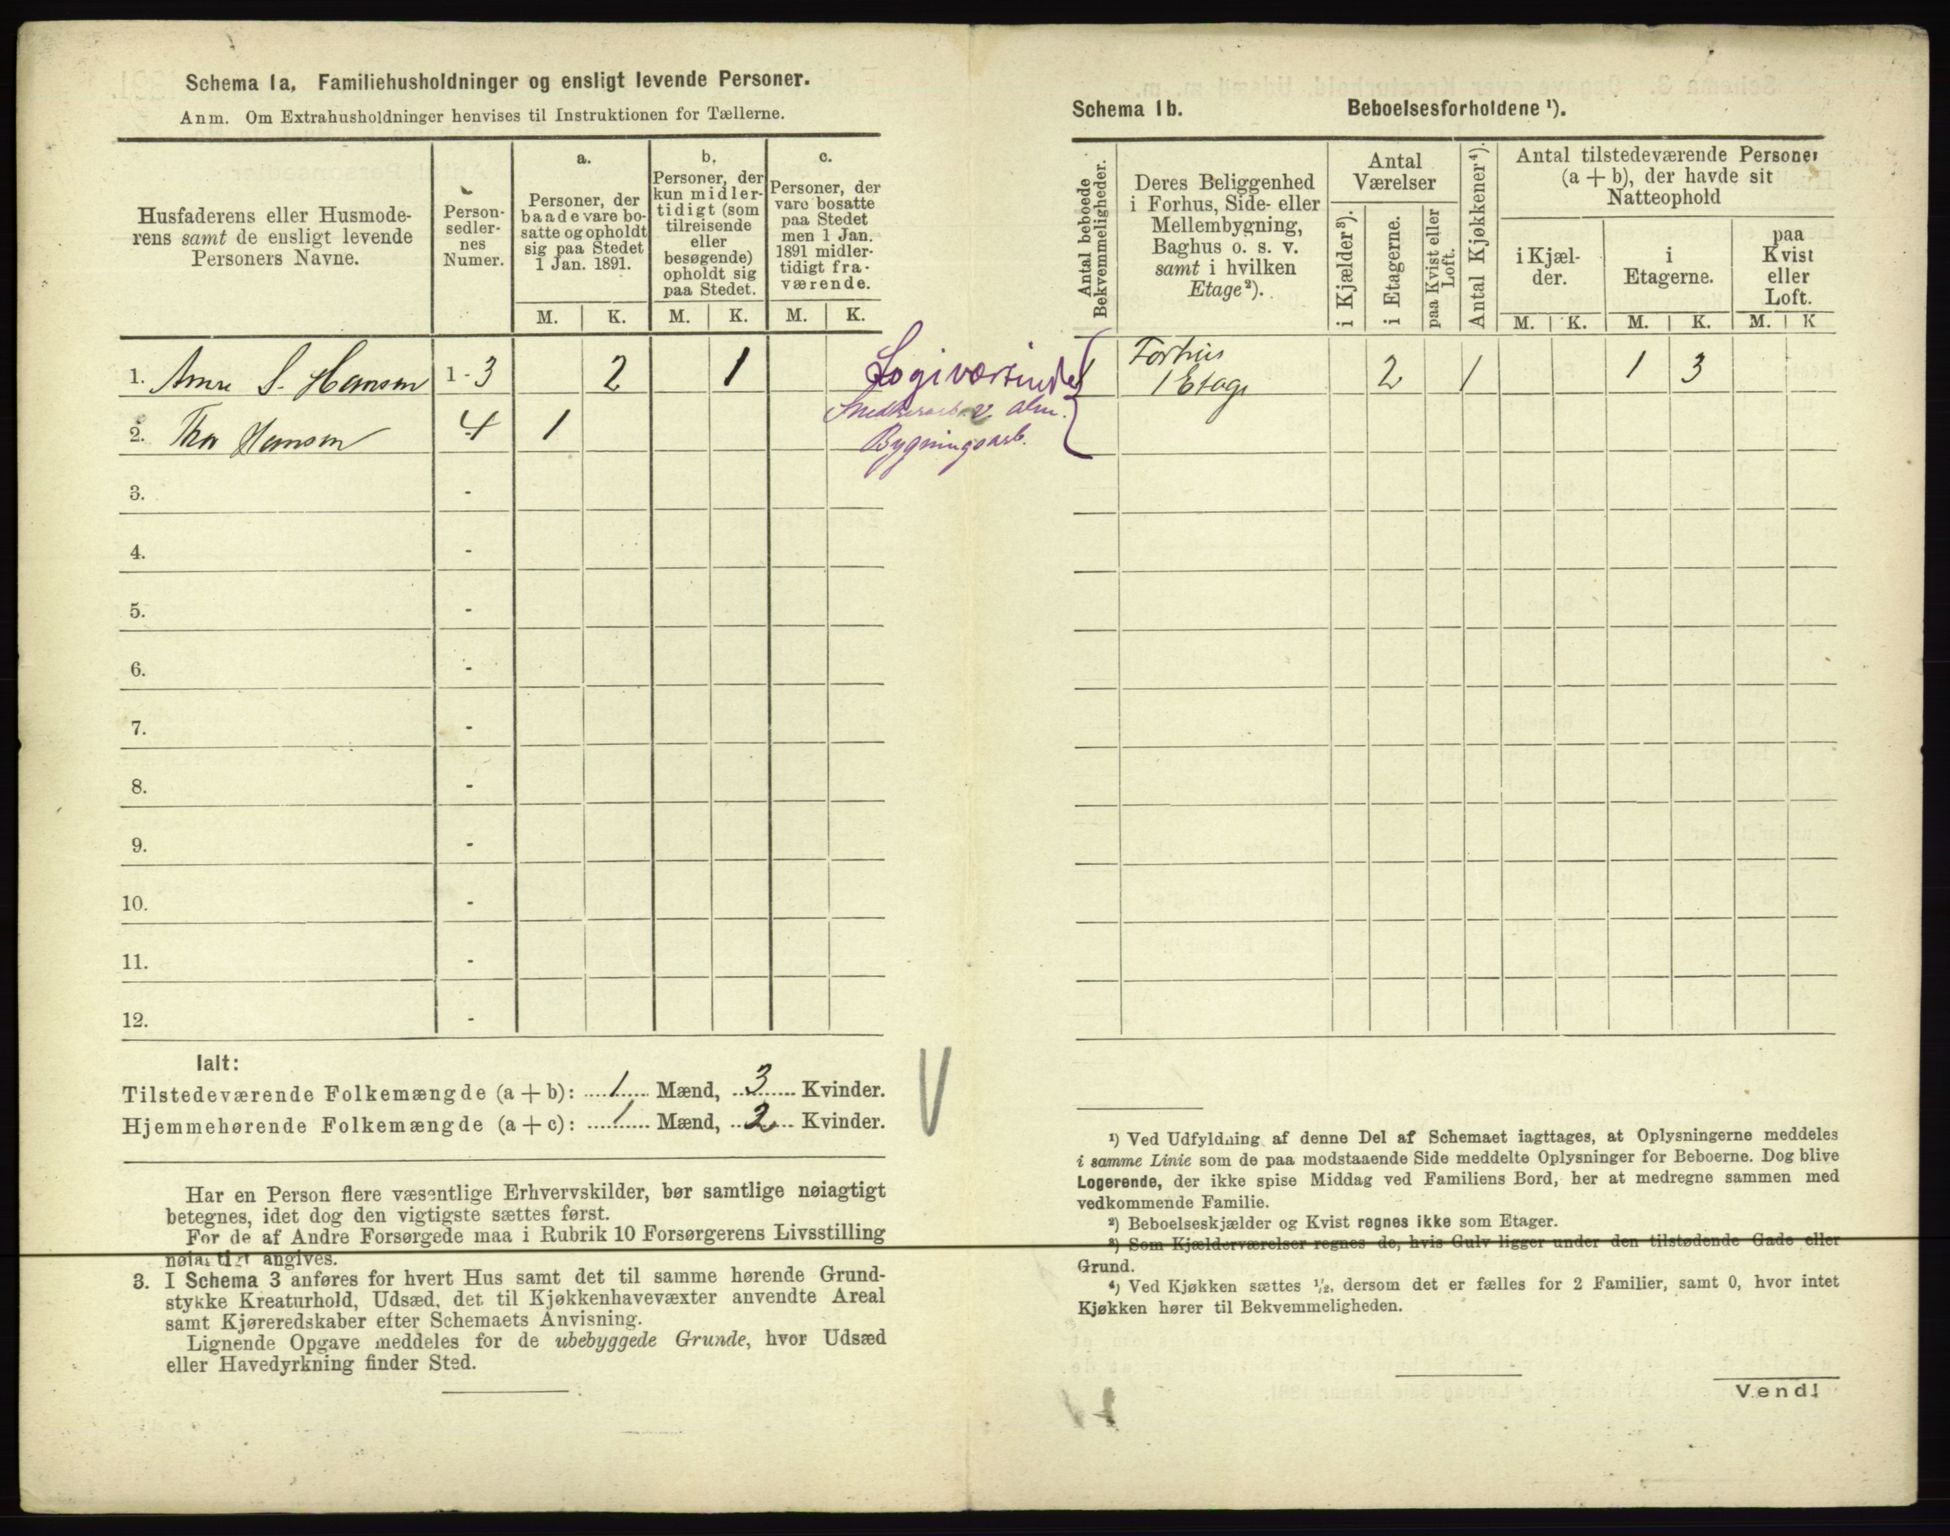 Schema 1a, Familiehusholdninger og ensligt levende Personer.
Anm. Om Extrahusholdninger henvises til Instruktionen for Tællerne.
Husfaderens eller Husmode-
rens samt de ensligt levende
Personers Navne.
Person-
sedler-
nes
Numer.
a.
Personer, der
baade vare bo-
satte og opholdt
sig paa Stedet
1 Jan. 1891.
b.
Personer, der
kun midler-
tidigt (som
tilreisende
eller
besøgende)
opholdt sig
paa Stedet.
c.
Personer, der
vare bosatte
paa Stedet
men 1 Jan.
1891 midler-
tidigt fra-
værende.
M. K. M. K. M. K.
1. Anne S. Hansen 1-3 2 1 Logivœrtinde
Snedkerarb. v. alm.
2. Thor Hansen 4 1
Bygningsarb.
3. -
4. -
5. -
6. -
7. -
8. -
9. -
10. -
11. -
12. -
Ialt:
Tilstedeværende Folkemængde (a + b): 1 Mænd, 3 Kvinder.
Hjemmehørende Folkemængde (a + c): 1 Mænd, 2 Kvinder.
Har en Person flere væsentlige Erhvervskilder, bør samtlige nøiagtigt
betegnes, idet dog den vigtigste sættes først.
For de af Andre Forsørgede maa i Rubrik 10 Forsørgerens Livsstilling
nøiagtigt angives.
3. I Schema 3 anføres for hvert Hus samt det til samme hørende Grund-
stykke Kreaturhold, Udsæd, det til Kjøkkenhavevæxter anvendte Areal
samt Kjøreredskaber efter Schemaets Anvisning.
Lignende Opgave meddeles for de ubebyggede Grunde, hvor Udsæd
eller Havedyrkning finder Sted.
Schema 1b. Beboelsesforholdene ¹).
Antal beboede
Bekvemmeligheder.
Deres Beliggenhed
i Forhus, Side- eller
Mellembygning,
Baghus o. s. v.
samt i hvilken
Etage²).
Antal
Værelser
i Kjælder³).
i Etagerne.
paa Kvist eller
Loft.
Antal Kjøkkener⁴).
Antal tilstedeværende Personer
(a + b), der havde sit
Natteophold
i Kjæl-
der.
i
Etagerne.
paa
Kvist
eller
Loft.
M. K. M. K. M. K
1 Forhus
1 Etage 2 1 1 3
¹) Ved Udfyldning af denne Del af Schemaet iagttages, at Oplysningerne meddeles
i samme Linie som de paa modstaaende Side meddelte Oplysninger for Beboerne. Dog blive
Logerende, der ikke spise Middag ved Familiens Bord, her at medregne sammen med
vedkommende Familie.
²) Beboelseskjælder og Kvist regnes ikke som Etager.
³) Som Kjælderværelser regnes de, hvis Gulv ligger under den tilstødende Gade eller
Grund.
⁴) Ved Kjøkken sættes ½, dersom det er fælles for 2 Familier, samt 0, hvor intet
Kjøkken hører til Bekvemmeligheden.
Vend!